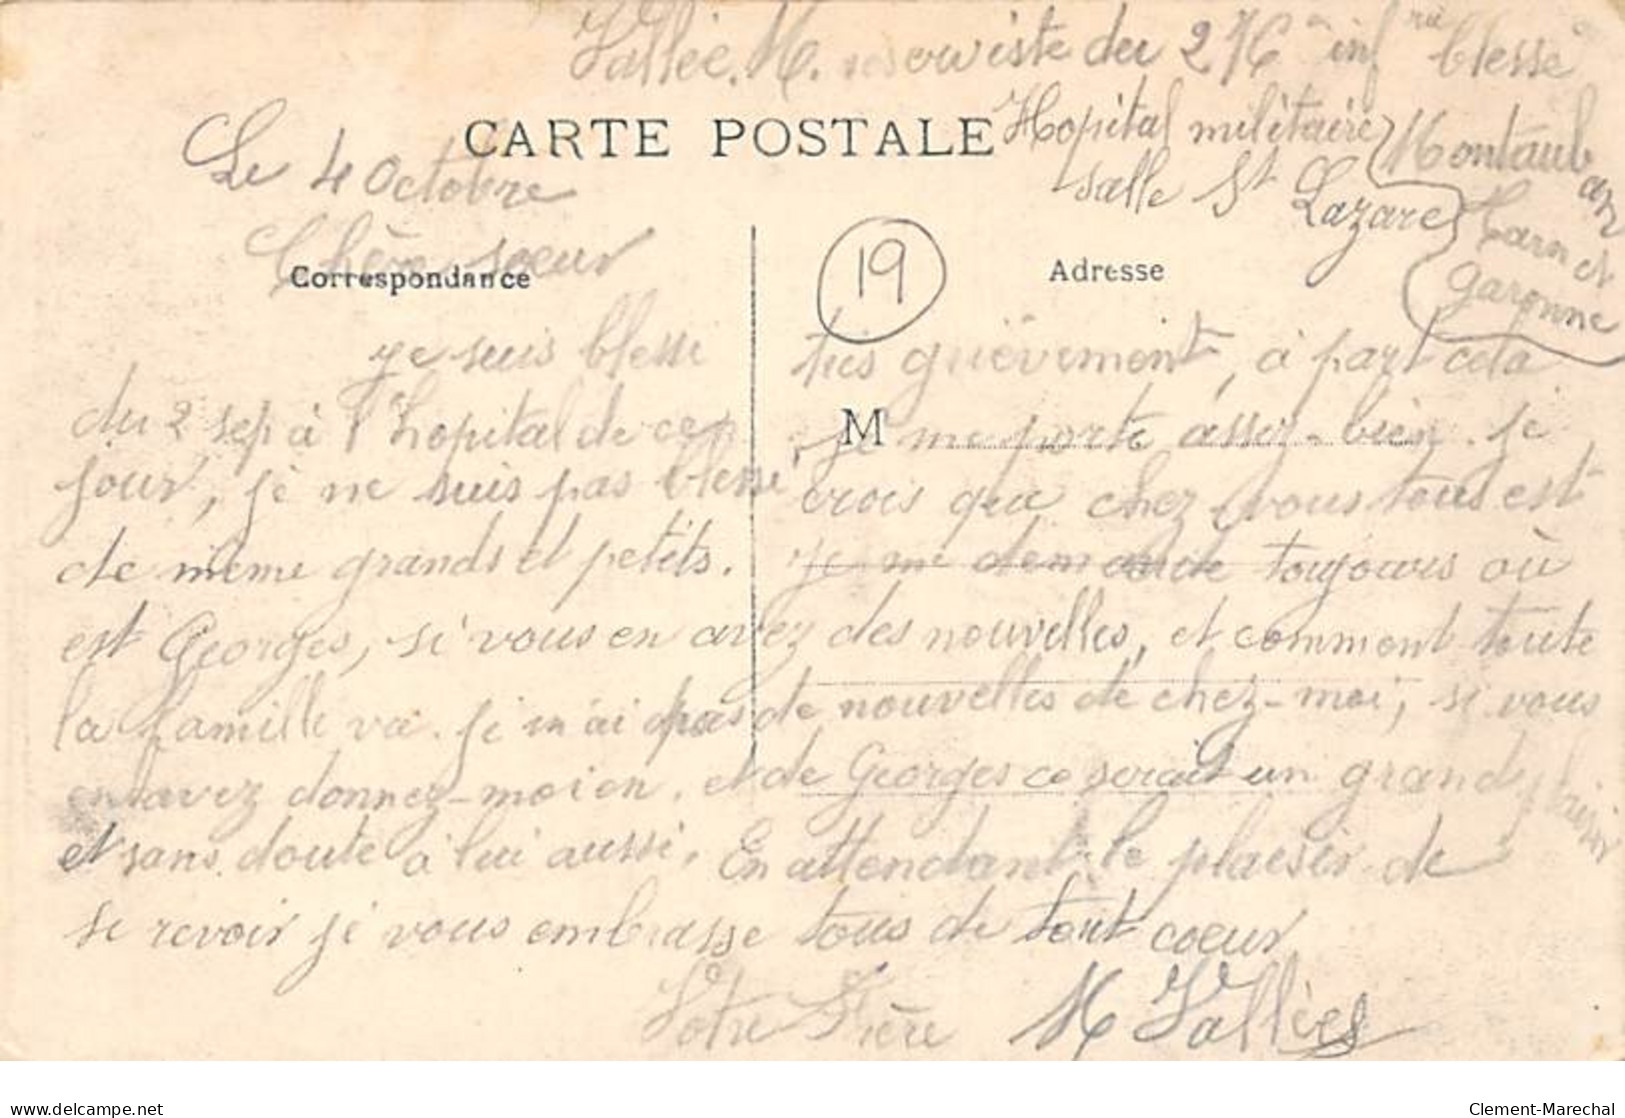 Vallée. M. reserviste du 276e infrie blessé
Hopital militaire Montauban
salle St Lazare Tarn et
garonne
CARTE POSTALE
Le 4 Octobre
Chère soeur
Correspondance
19
Adresse
je suis blessé
du 2 sep à l'hopital de ce
jour, je ne suis pas blessé
très grièvement, à part cela
M
je me porte assez-bien. je
crois que chez vous tous est
de même grands et petits.
je me demande toujours où
est Georges, si vous en avez des nouvelles, et comment toute
la famille va. je n'ai pas de nouvelles de chez-moi, si vous
en avez donnez-moi en. et de Georges ce serait un grand plaisir
et sans doute à lui aussi. En attendant le plaisir de
se revoir je vous embrasse tous de tout coeur
Votre Frère M Vallée
www.delcampe.net
Clement-Marechal